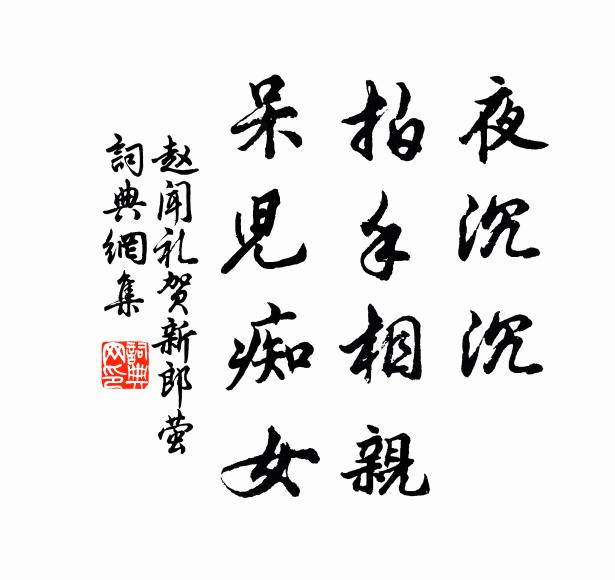 夜沉沉
拍手相親
呆兒痴女
赵闻礼贺新郎萤
詞典網集
詞典
网印